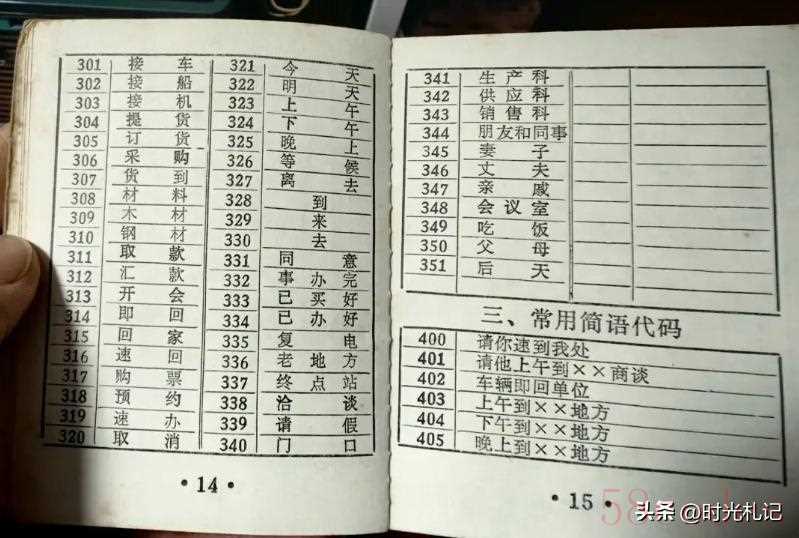 301 接车
302 接船
303 接机
304 提货
305 订货
306 采购
307 货到
308 材料
309 木材
310 钢材
311 取款
312 汇款
313 开会
314 即回
315 回家
316 速回
317 购票
318 预约
319 速办
320 取消
321 今天
322 明天
323 上午
324 下午
325 晚上
326 等候
327 离去
328 到
329 来
330 去
331 同意
332 事办完
333 已买好
334 已办好
335 复电
336 老地方
337 终点站
338 洽谈
339 请假
340 门口
·14·
341 生产科
342 供应科
343 销售科
344 朋友和同事
345 妻子
346 丈夫
347 亲戚
348 会议室
349 吃饭
350 父母
351 后天
三、常用简语代码
400 请你速到我处
401 请他上午到××商谈
402 车辆即回单位
403 上午到××地方
404 下午到××地方
405 晚上到××地方
·15·
头条 @时光札记